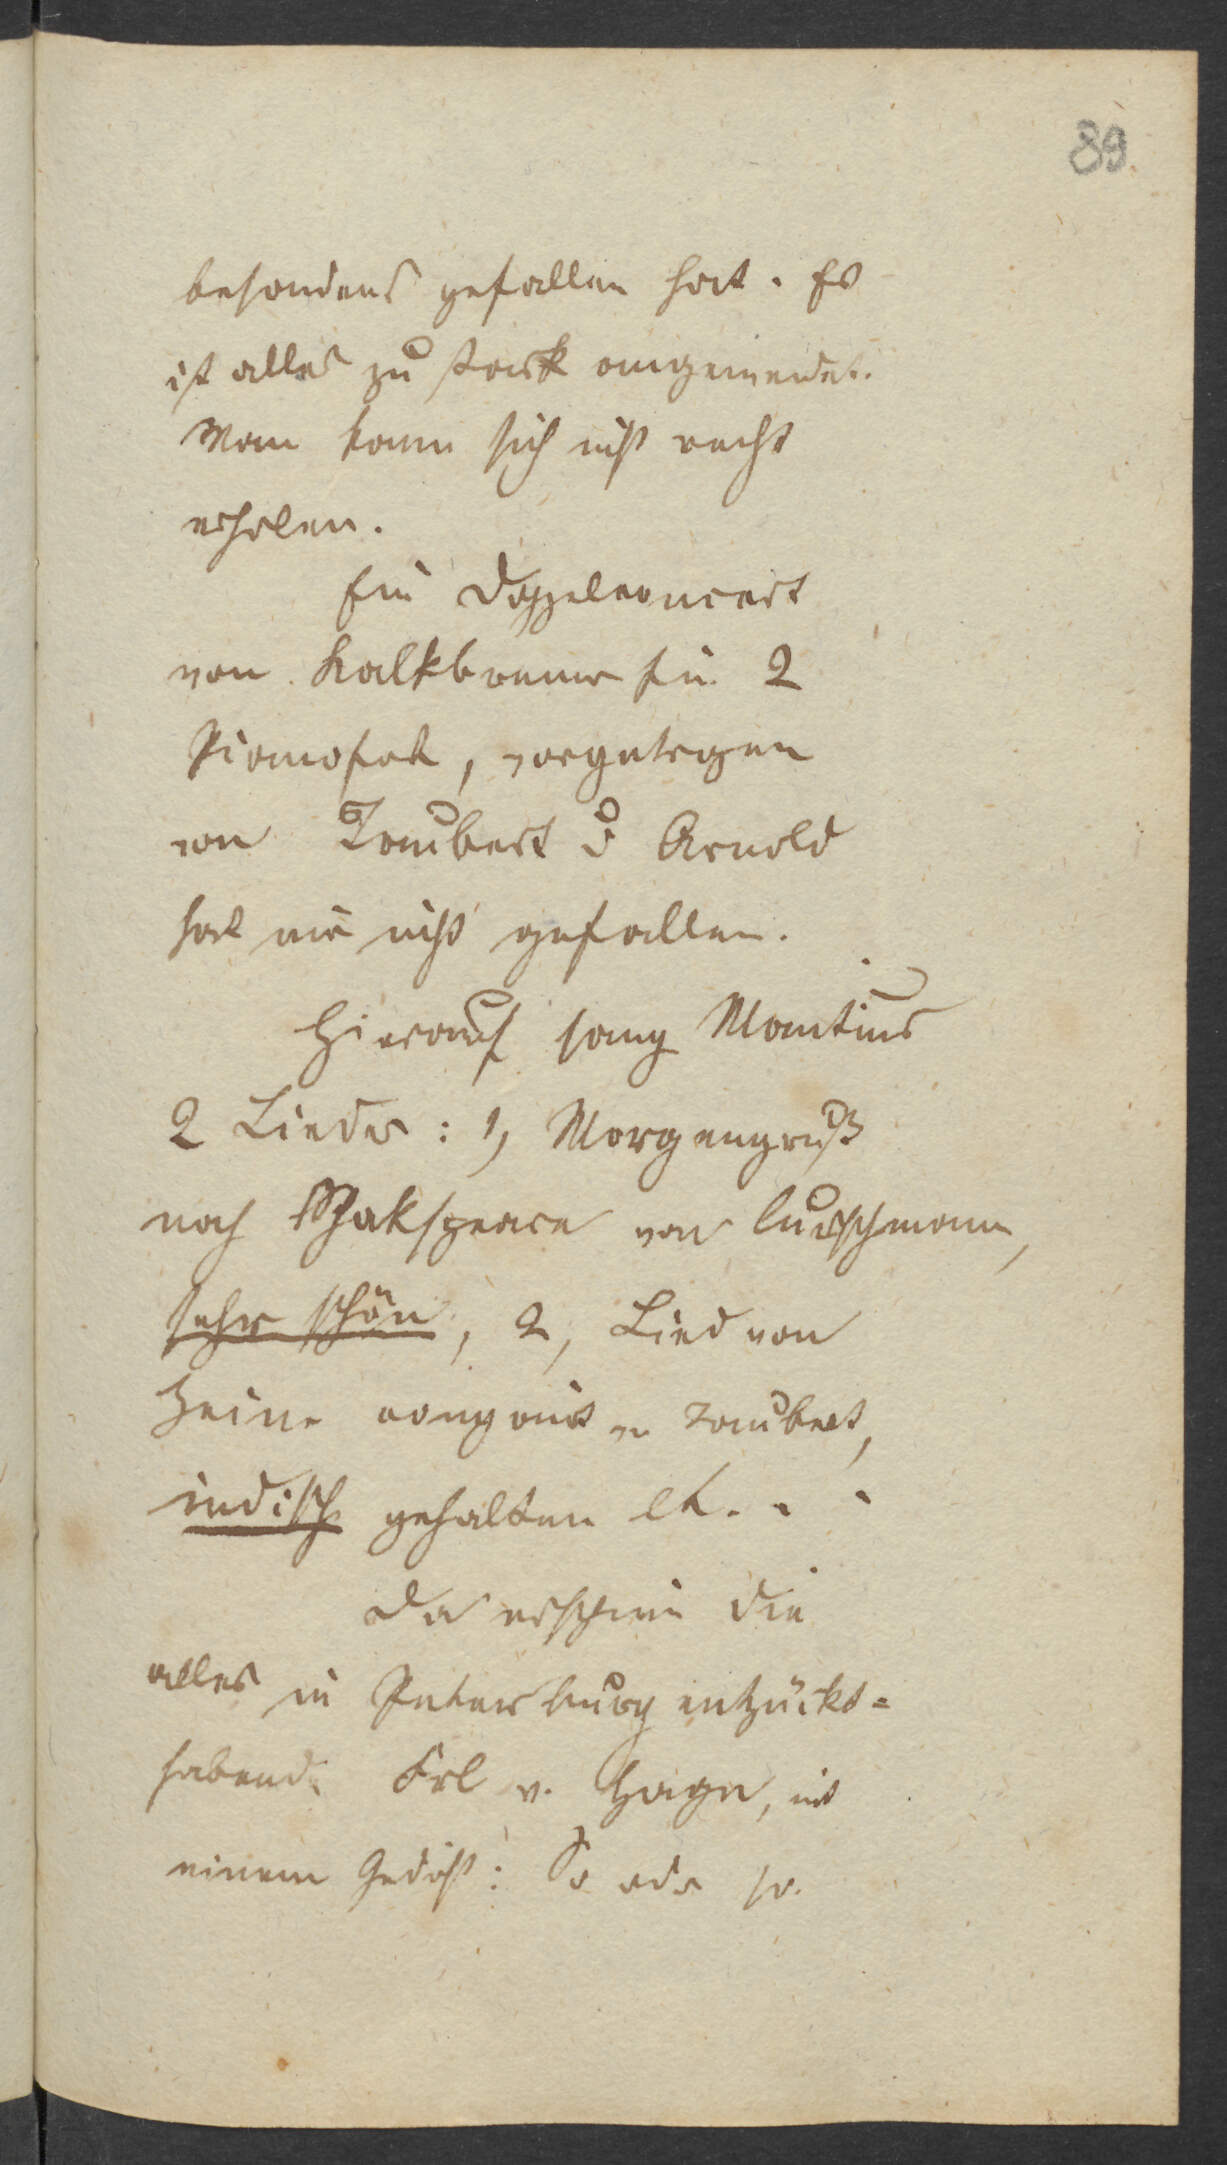 89
besonders gefallen hat. Es
ist alles zu stark angewendet.
Man kann sich nicht recht
erholen.
Ein Doppelconcert
von Kalkbrenner für 2
Pianofort, vorgetragen
von Taubert u Arnold
hat mir nicht gefallen.
Hierauf sang Mantius
2 Lieder: 1, Morgengruß
nach Shakspeare von Curschmann,
sehr schön, 2, Lied von
Heine componirt v. Taubert,
indisch gehalten etc. . .
Da erschien die
alles in Petersburg entzückt=
habende Frl v. Hagn, mit
einem Gedicht: So oder so.